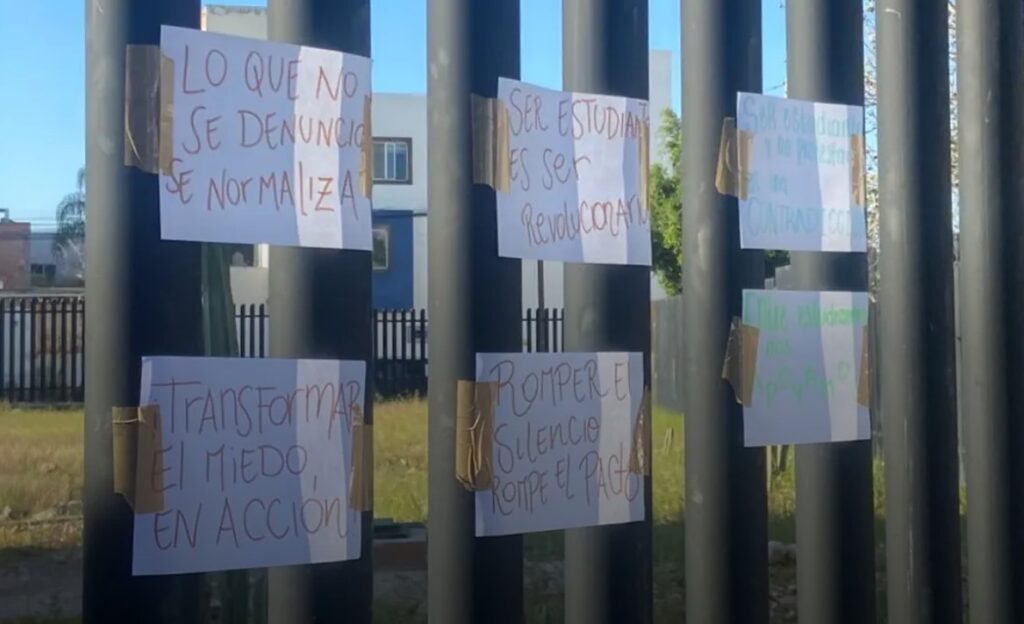 LO QUE NO
SE DENUNCIA
SE NORMALIZA
SER ESTUDIANTE
ES SER
REVOLUCIONARI
Ser estudiante
y no protestar
es una
CONTRADICCI
TRANSFORMAR
EL MIEDO,
EN ACCIÓN
ROMPER E
SILENCIO
ROMPE EL PACTO
Entre estudiantes
nos